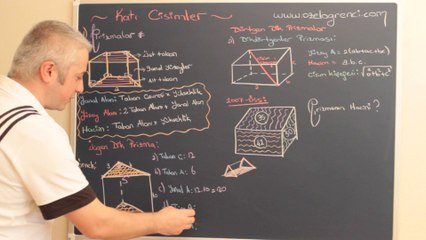 ~ Katı Cisimler ~
www.ozelogrenci.com
Prizmalar
Üst taban
Yanal Yüzeyler
Alt taban
Yanal Alan: Taban Çevresi x Yükseklik
Yüzey Alan: 2.Taban Alanı + Yanal Alan
Hacim: Taban Alanı x Yükseklik
Üçgen Dik Prizma:
Örnek:
a) Taban Ç: 12
b) Taban A: 6
c) Yanal A: 12.10 = 120
10
Dörtgen Dik Prizmalar
a) Dikdörtgenler Prizması:
Yüzey A = 2(ab+ac+bc)
Hacim = a.b.c.
Cisim köşegeni: √a²+b²+c²
35
42
Prizmanın Hacmi?